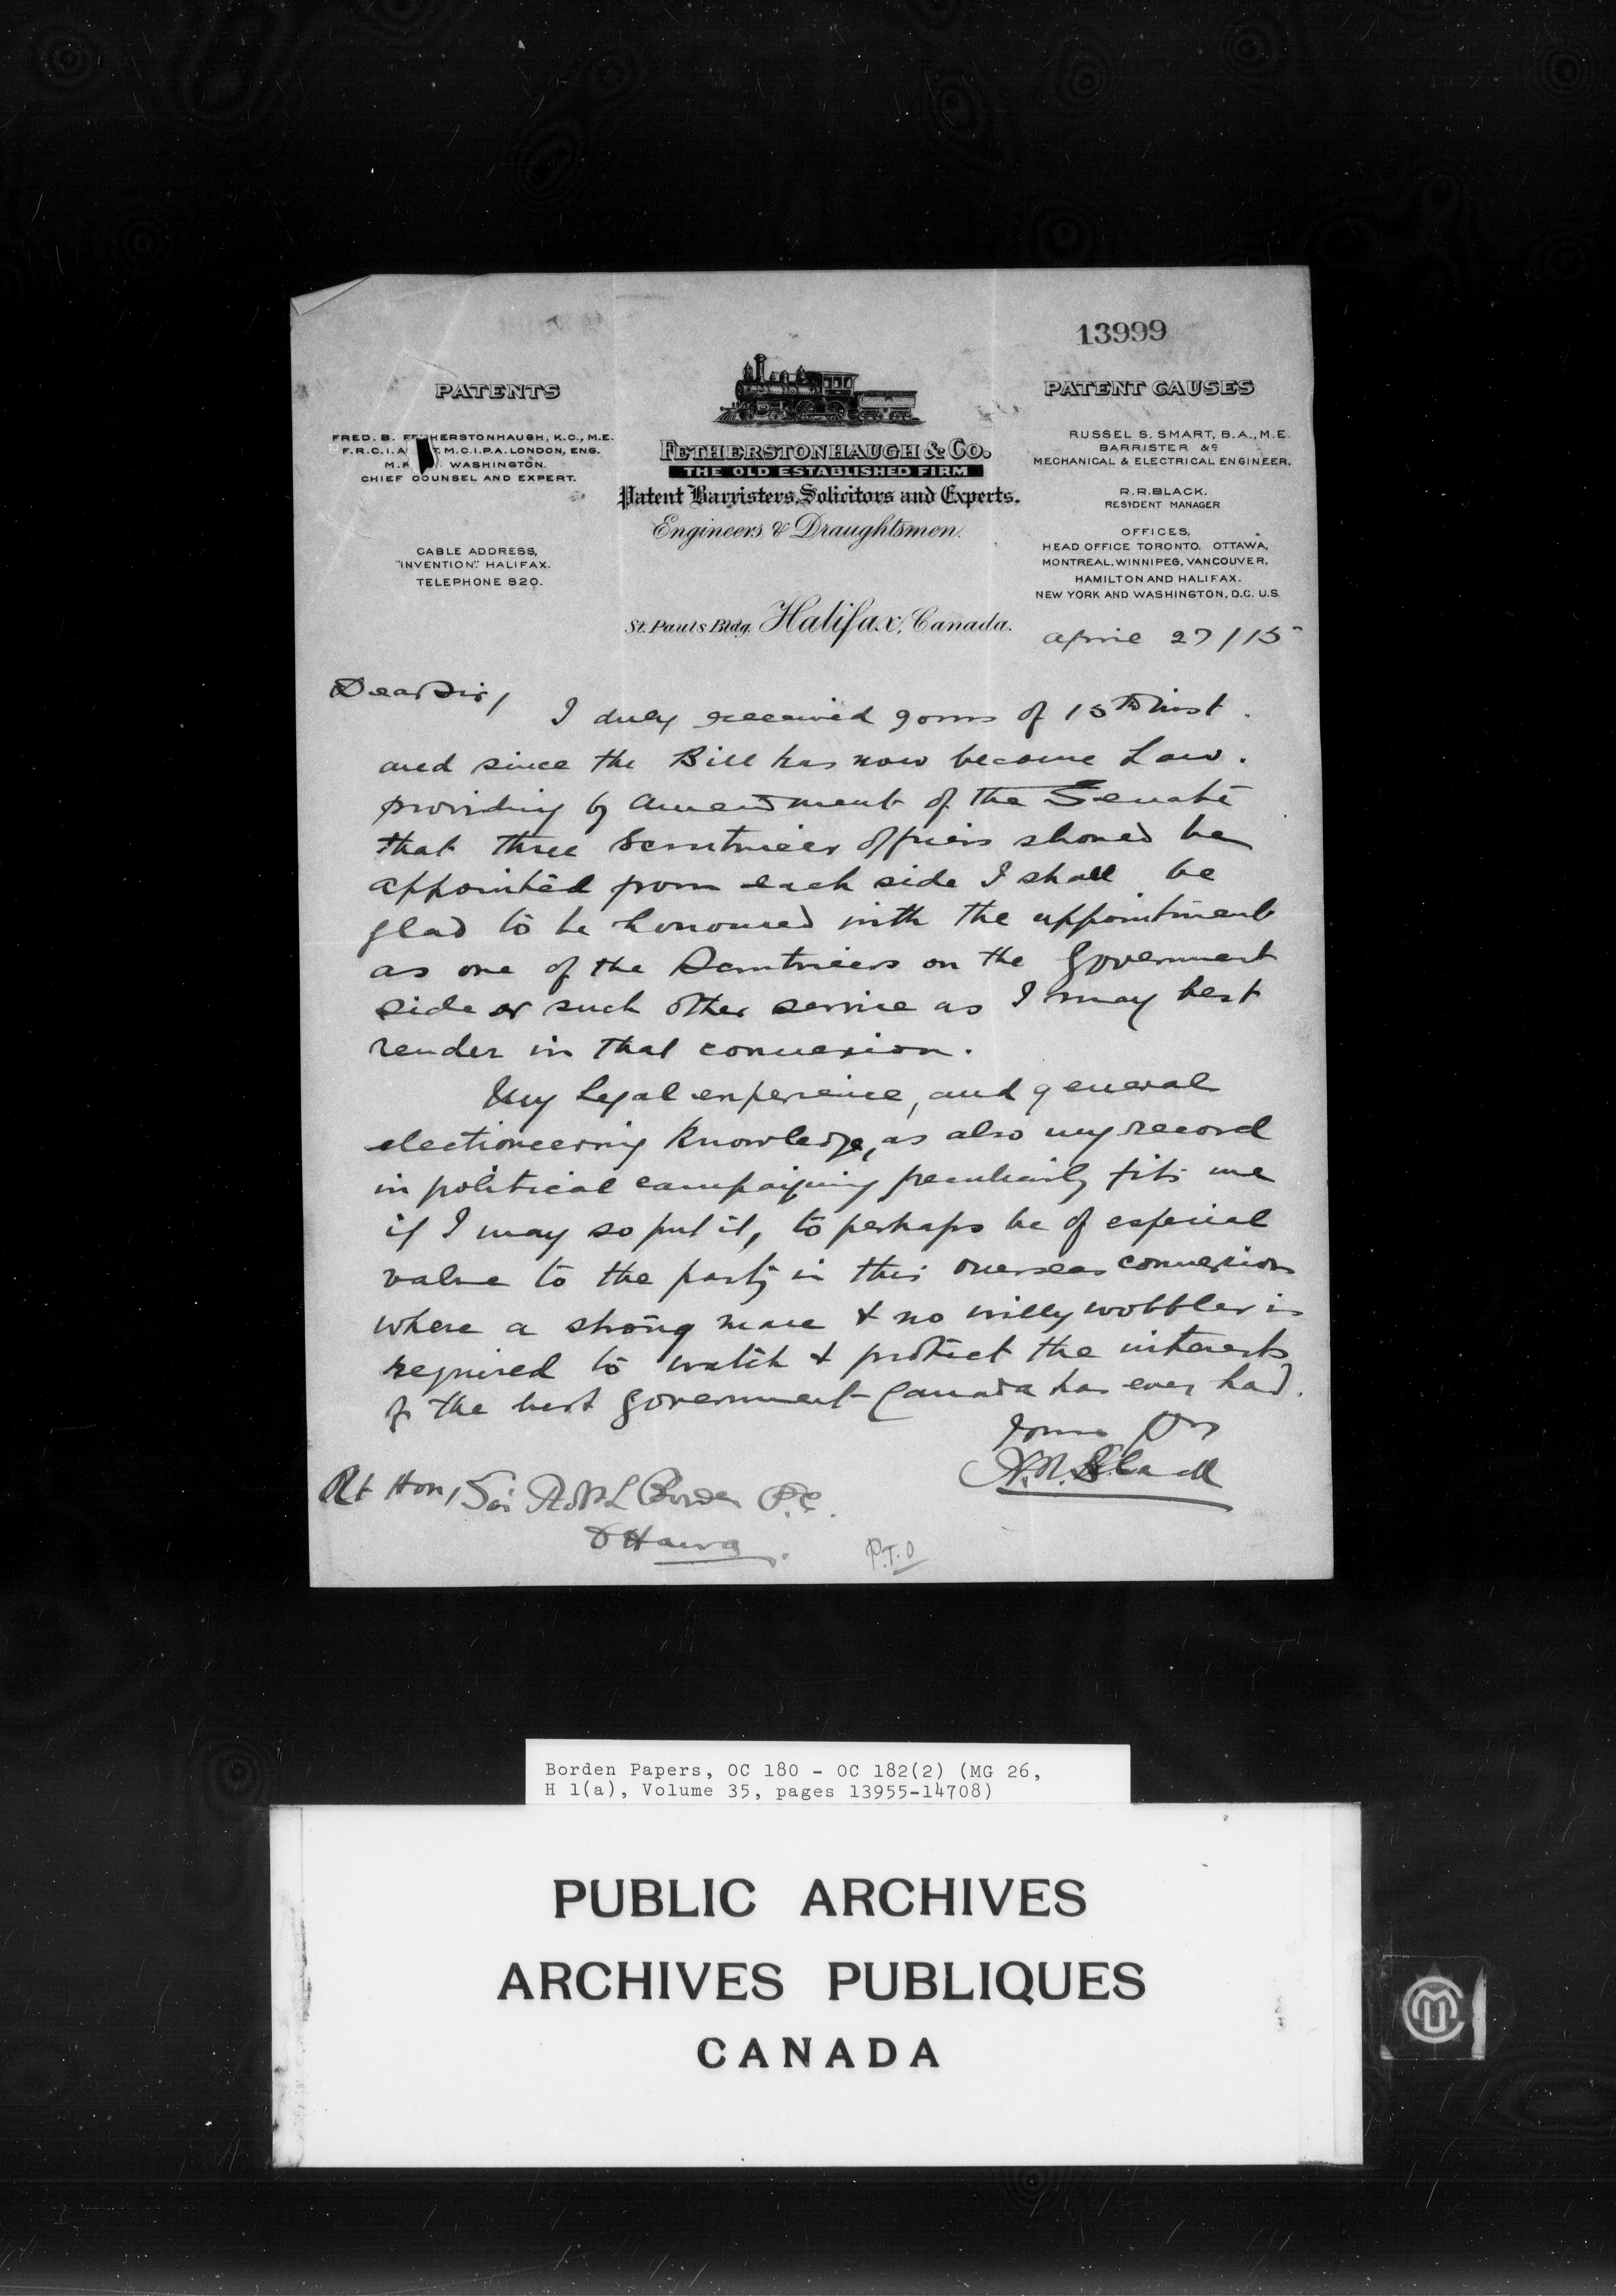 13999
PATENTS
FRED. B. FETHERSTONHAUGH, K.C., M.E.
F.R.C.I.A. T.M.C.I.P.A. LONDON, ENG.
M.P. WASHINGTON.
CHIEF COUNSEL AND EXPERT.
CABLE ADDRESS,
"INVENTION". HALIFAX.
TELEPHONE 820.
FETHERSTONHAUGH & CO.
THE OLD ESTABLISHED FIRM
Patent Barristers, Solicitors and Experts.
Engineers & Draughtsmen.
St. Pauls Bldg. Halifax, Canada.
PATENT CAUSES
RUSSEL S. SMART, B.A., M.E.
BARRISTER &c
MECHANICAL & ELECTRICAL ENGINEER.
R.R. BLACK.
RESIDENT MANAGER
OFFICES,
HEAD OFFICE TORONTO. OTTAWA,
MONTREAL, WINNIPEG, VANCOUVER,
HAMILTON AND HALIFAX.
NEW YORK AND WASHINGTON, D.C. U.S.
April 27/15
Dear Sir,
I duly received yours of 15th inst.
and since the Bill has now become Law.
providing by amendment of the Senate
that three Scrutineer officers should be
appointed from each side I shall be
glad to be honoured with the appointment
as one of the Scrutineers on the Government
side or such other service as I may best
render in that connexion.
My Legal experience, and general
electioneering knowledge, as also my record
in political campaigning peculiarly fits me
if I may so put it, to perhaps be of especial
value to the party in this overseas connexion
where a strong man & no willy wobbler is
required to watch & protect the interests
of the best Government Canada has ever had.
Yours
R.R. Black
Rt Hon, Sir Robt L Borden P.C.
Ottawa.
P.T.O
Borden Papers, OC 180 - OC 182(2) (MG 26,
H 1(a), Volume 35, pages 13955-14708)
PUBLIC ARCHIVES
ARCHIVES PUBLIQUES
CANADA